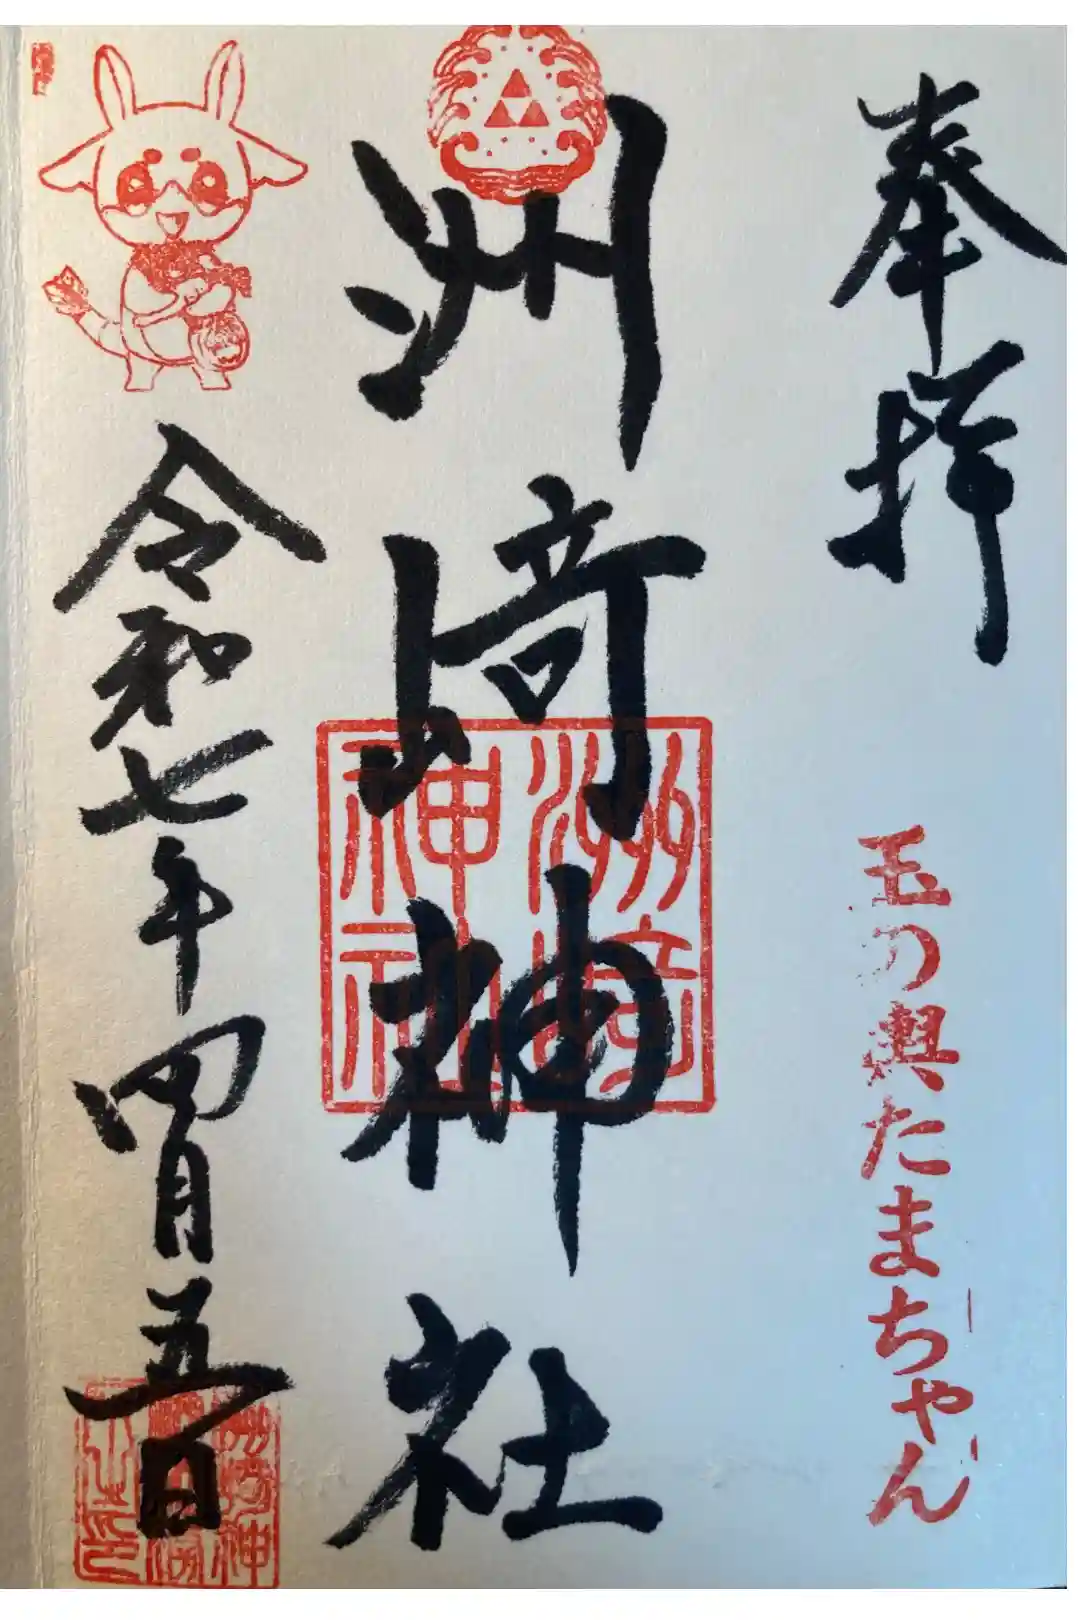 奉拝
玉の輿たまちゃん
洲崎神社
洲崎
神社
令和七年四月五日